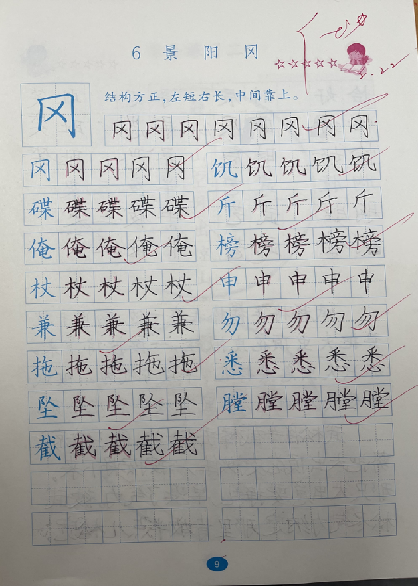 6 景阳冈
冈 结构方正，左短右长，中间靠上。
冈 冈 冈 冈 冈 冈 冈 冈
冈 冈 冈 冈 冈 饥 饥 饥 饥 饥
碟 碟 碟 碟 碟 斤 斤 斤 斤 斤
俺 俺 俺 俺 俺 榜 榜 榜 榜 榜
杖 杖 杖 杖 杖 申 申 申 申 申
兼 兼 兼 兼 兼 勿 勿 勿 勿 勿
拖 拖 拖 拖 拖 悉 悉 悉 悉 悉
坠 坠 坠 坠 坠 膛 膛 膛 膛 膛
截 截 截 截 截
9